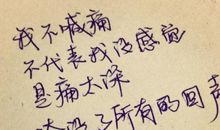 我不喊痛
不代表我没感觉
是痛太深
了所有的回